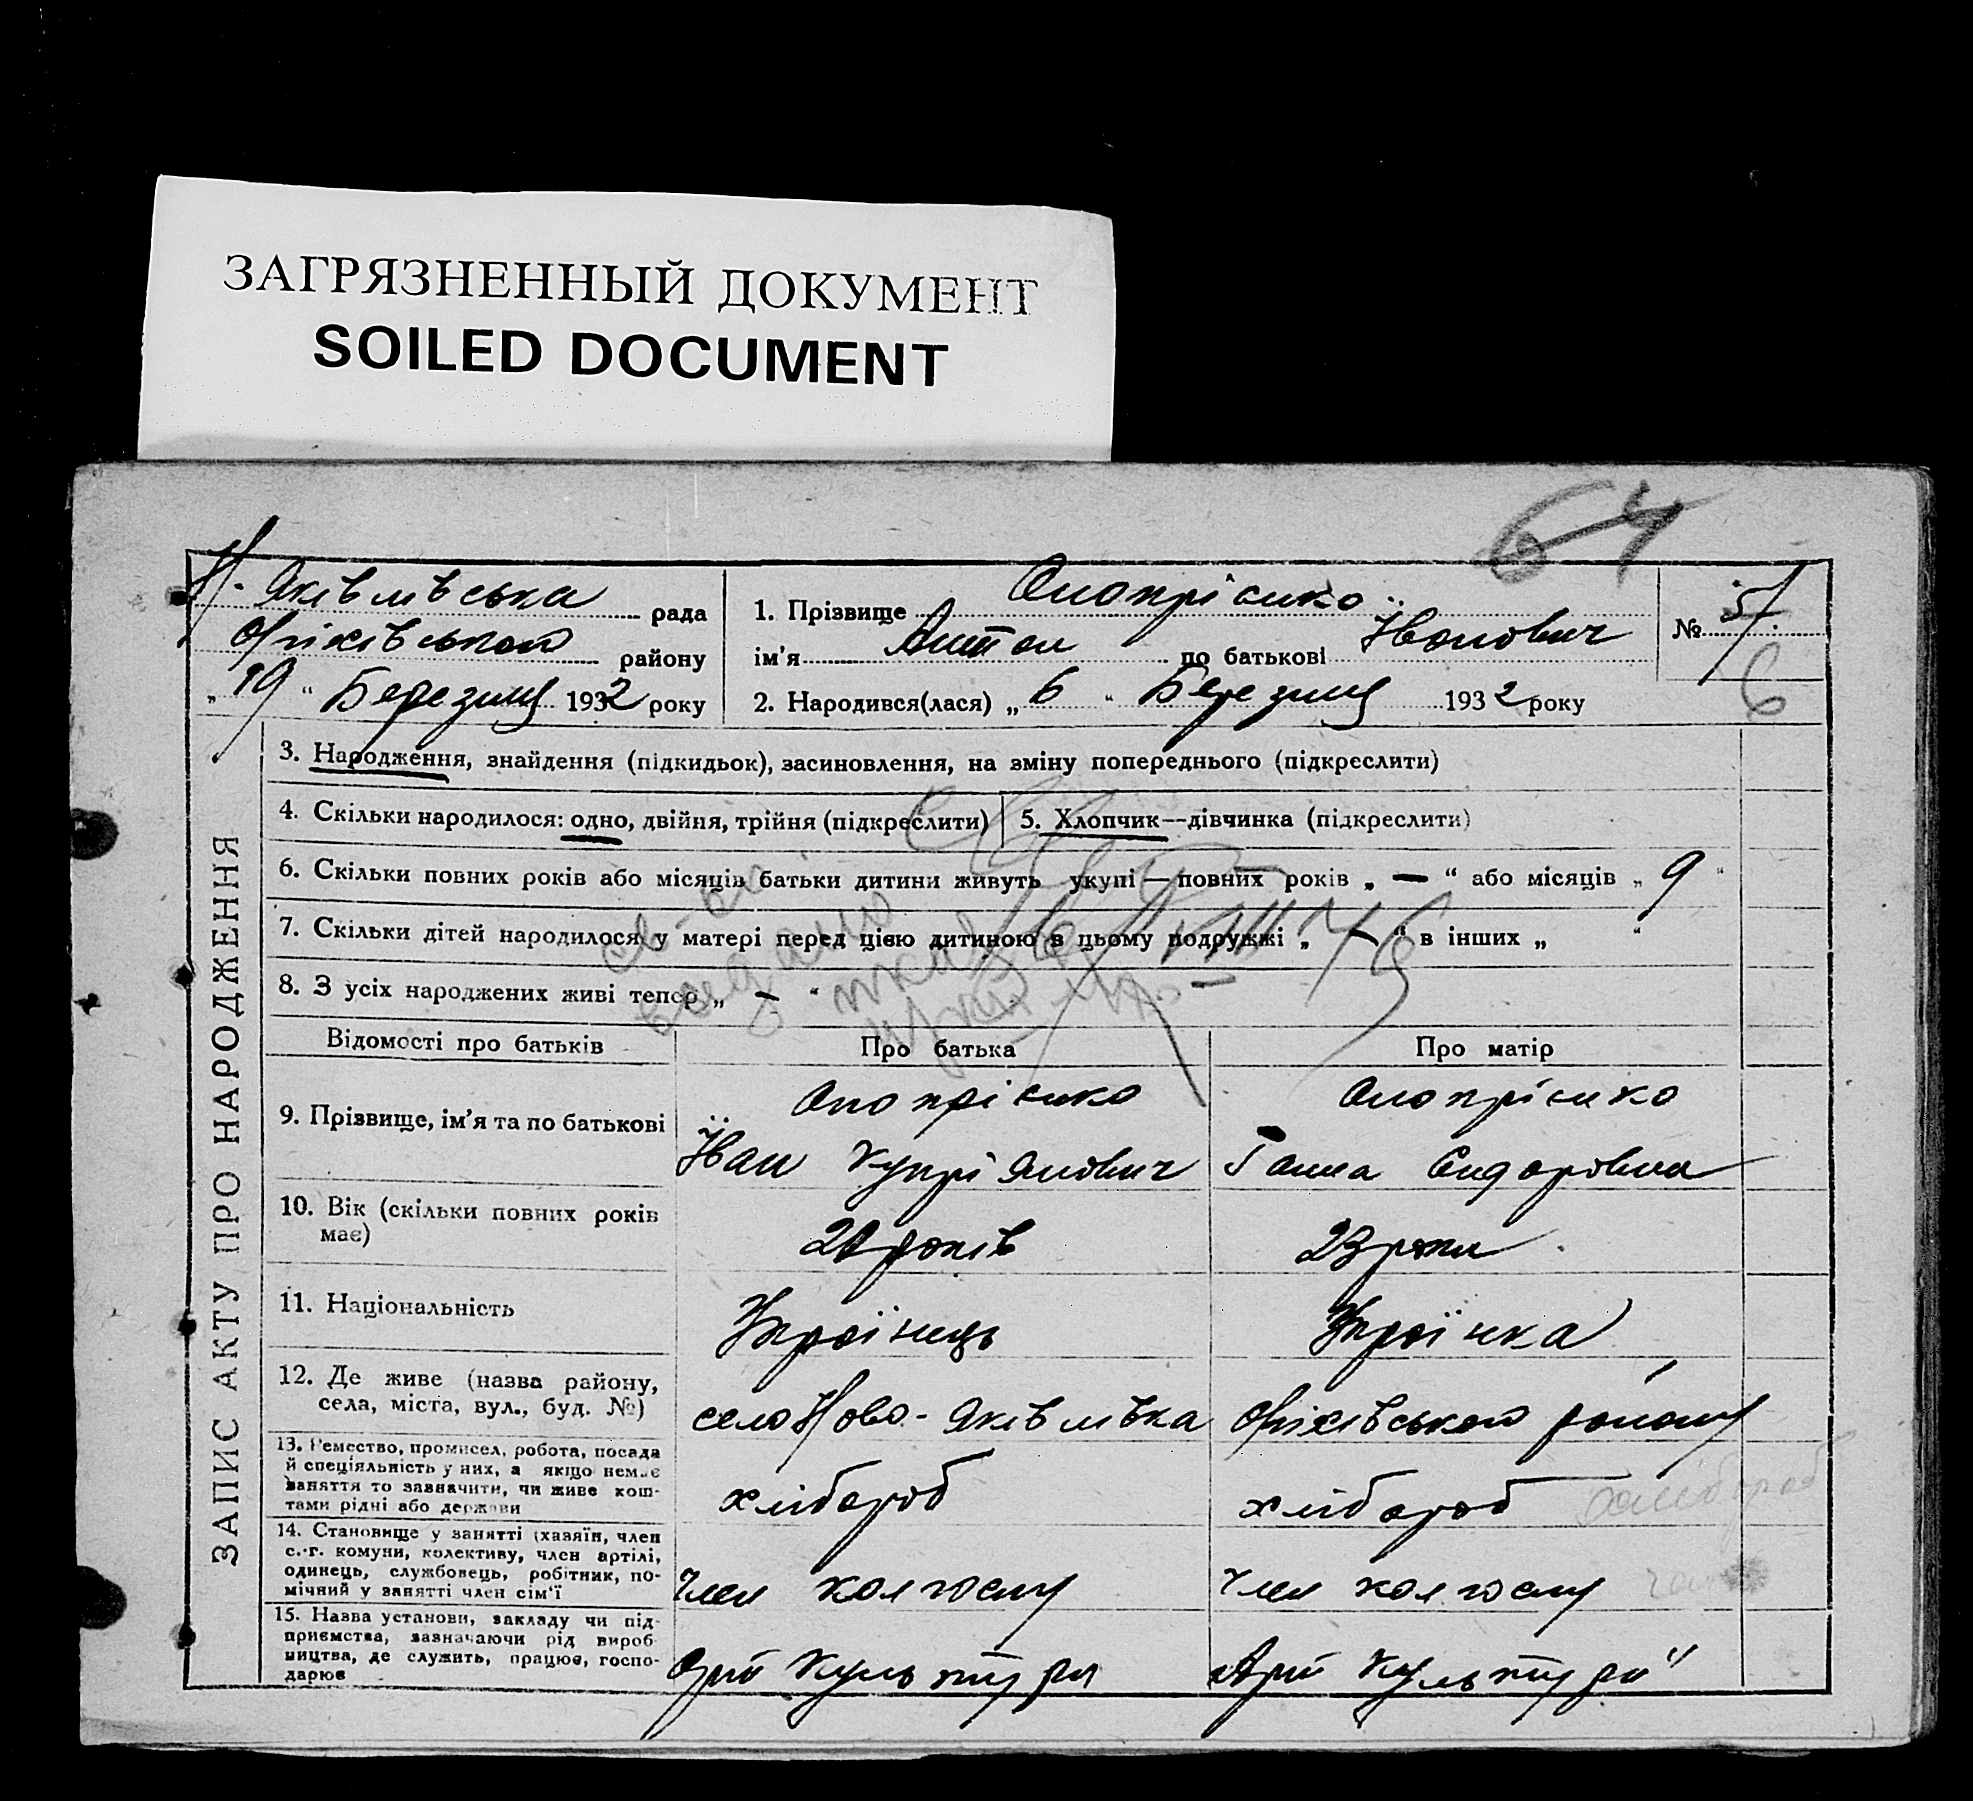 ЗАГРЯЗНЕННЫЙ ДОКУМЕНТ
SOILED DOCUMENT
64
Н-Яківлівська рада
Оріхівського району
„19“ Березиля 1932 року
1. Прізвище Онопрієнко
ім'я Антон по батькові Іванович
2. Народився(лася) „6“ Березиля 1932 року
№ 57.
6
ЗАПИС АКТУ ПРО НАРОДЖЕННЯ
3. Народження, знайдення (підкидьок), засиновлення, на зміну попереднього (підкреслити)
4. Скільки народилося: одно, двійня, трійня (підкреслити)
5. Хлопчик—дівчинка (підкреслити)
6. Скільки повних років або місяців батьки дитини живуть укупі—повних років „—“ або місяців „9“
7. Скільки дітей народилося у матері перед цією дитиною в цьому подружжі „—“ в інших „ “
8. З усіх народжених живі тепер „—“
Відомості про батьків
Про батька
Про матір
9. Прізвище, ім'я та по батькові
Онопрієнко
Іван Купріянович
Онопрієнко
Ганна Сидоровна
10. Вік (скільки повних років
має)
років
23 роки
11. Національність
Українець
Українка
12. Де живе (назва району,
села, міста, вул., буд. №)
село Ново-Яківлівка Оріхівського району
13. Ремество, промисел, робота, посада
й спеціяльність у них, а якщо немає
заняття то зазначити, чи живе кош-
тами рідні або держави
хлібороб
хлібороб
хлібороб
14. Становище у занятті (хазяїн, член
с.-г. комуни, колективу, член артілі,
одинець, службовець, робітник, по-
мічний у занятті член сім'ї
член колгоспу
член колгоспу
15. Назва установи, закладу чи під-
приємства, зазначаючи рід вироб-
ництва, де служить, працює, госпо-
дарює
культури
культури"